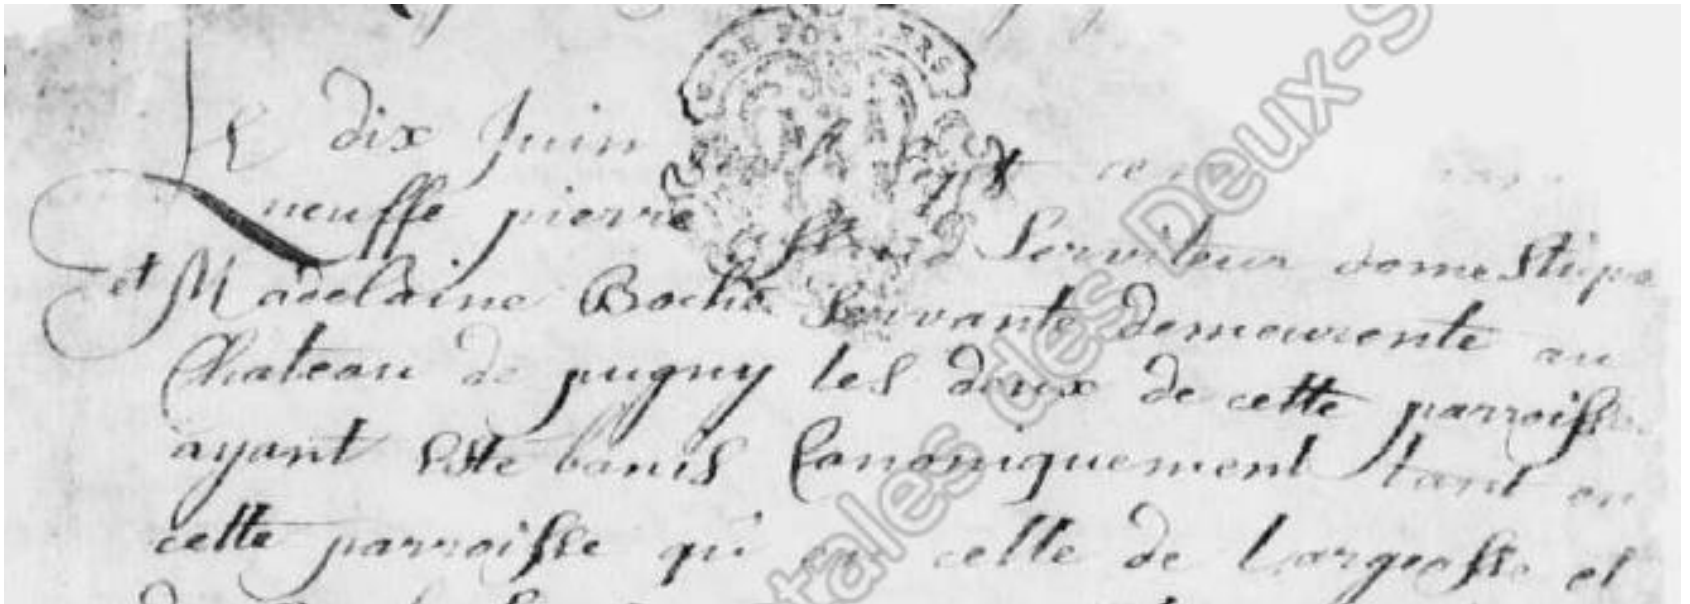 Le dix Juin sept cen
neuffe pierre serviteur domestique
et Madelaine Boche servante demeurente au
Chateau de pugny les deux de cette parroisse
ayant esté banis Canoniquement tant en
cette parroisse qu'en celle de Largeasse et
G DE POITIERS
tales des Deux-S